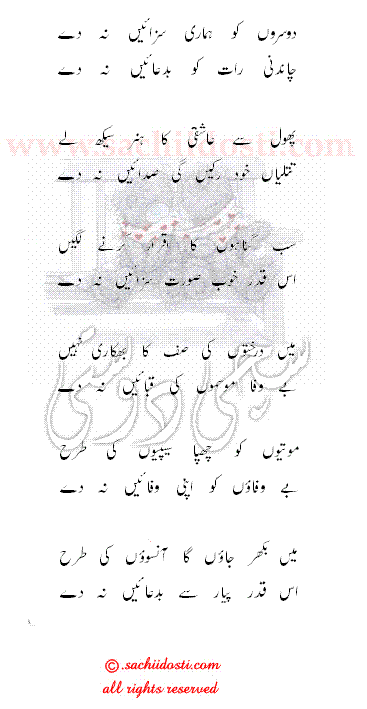 دوسروں کو ہماری سزائیں نہ دے
چاندنی رات کو بدعائیں نہ دے
www.sachiidosti.com
پھول سے عاشقی کا ہنر سیکھ لے
تتلیاں خود رکیں گی صدائیں نہ دے
سب گناہوں کا اقرار کرنے لگیں
اس قدر خوب صورت سزائیں نہ دے
میں درختوں کی صف کا بھکاری نہیں
بے وفا موسموں کی قبائیں نہ دے
سچی دوستی
موتیوں کو چھپا سیپیوں کی طرح
بے وفاؤں کو اپنی وفائیں نہ دے
میں بکھر جاؤں گا آنسوؤں کی طرح
اس قدر پیار سے بدعائیں نہ دے
©.sachiidosti.com
all rights reserved